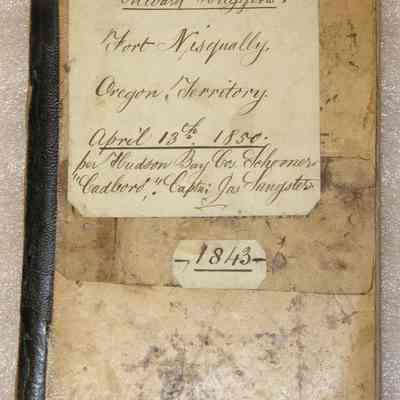 Edward Huggins.
Fort Nisqually,
Oregon Territory
April 13th 1850.
per Hudson Bay Cos. Schooner
"Cadboro," Captn Jas Sangster
- 1843 -